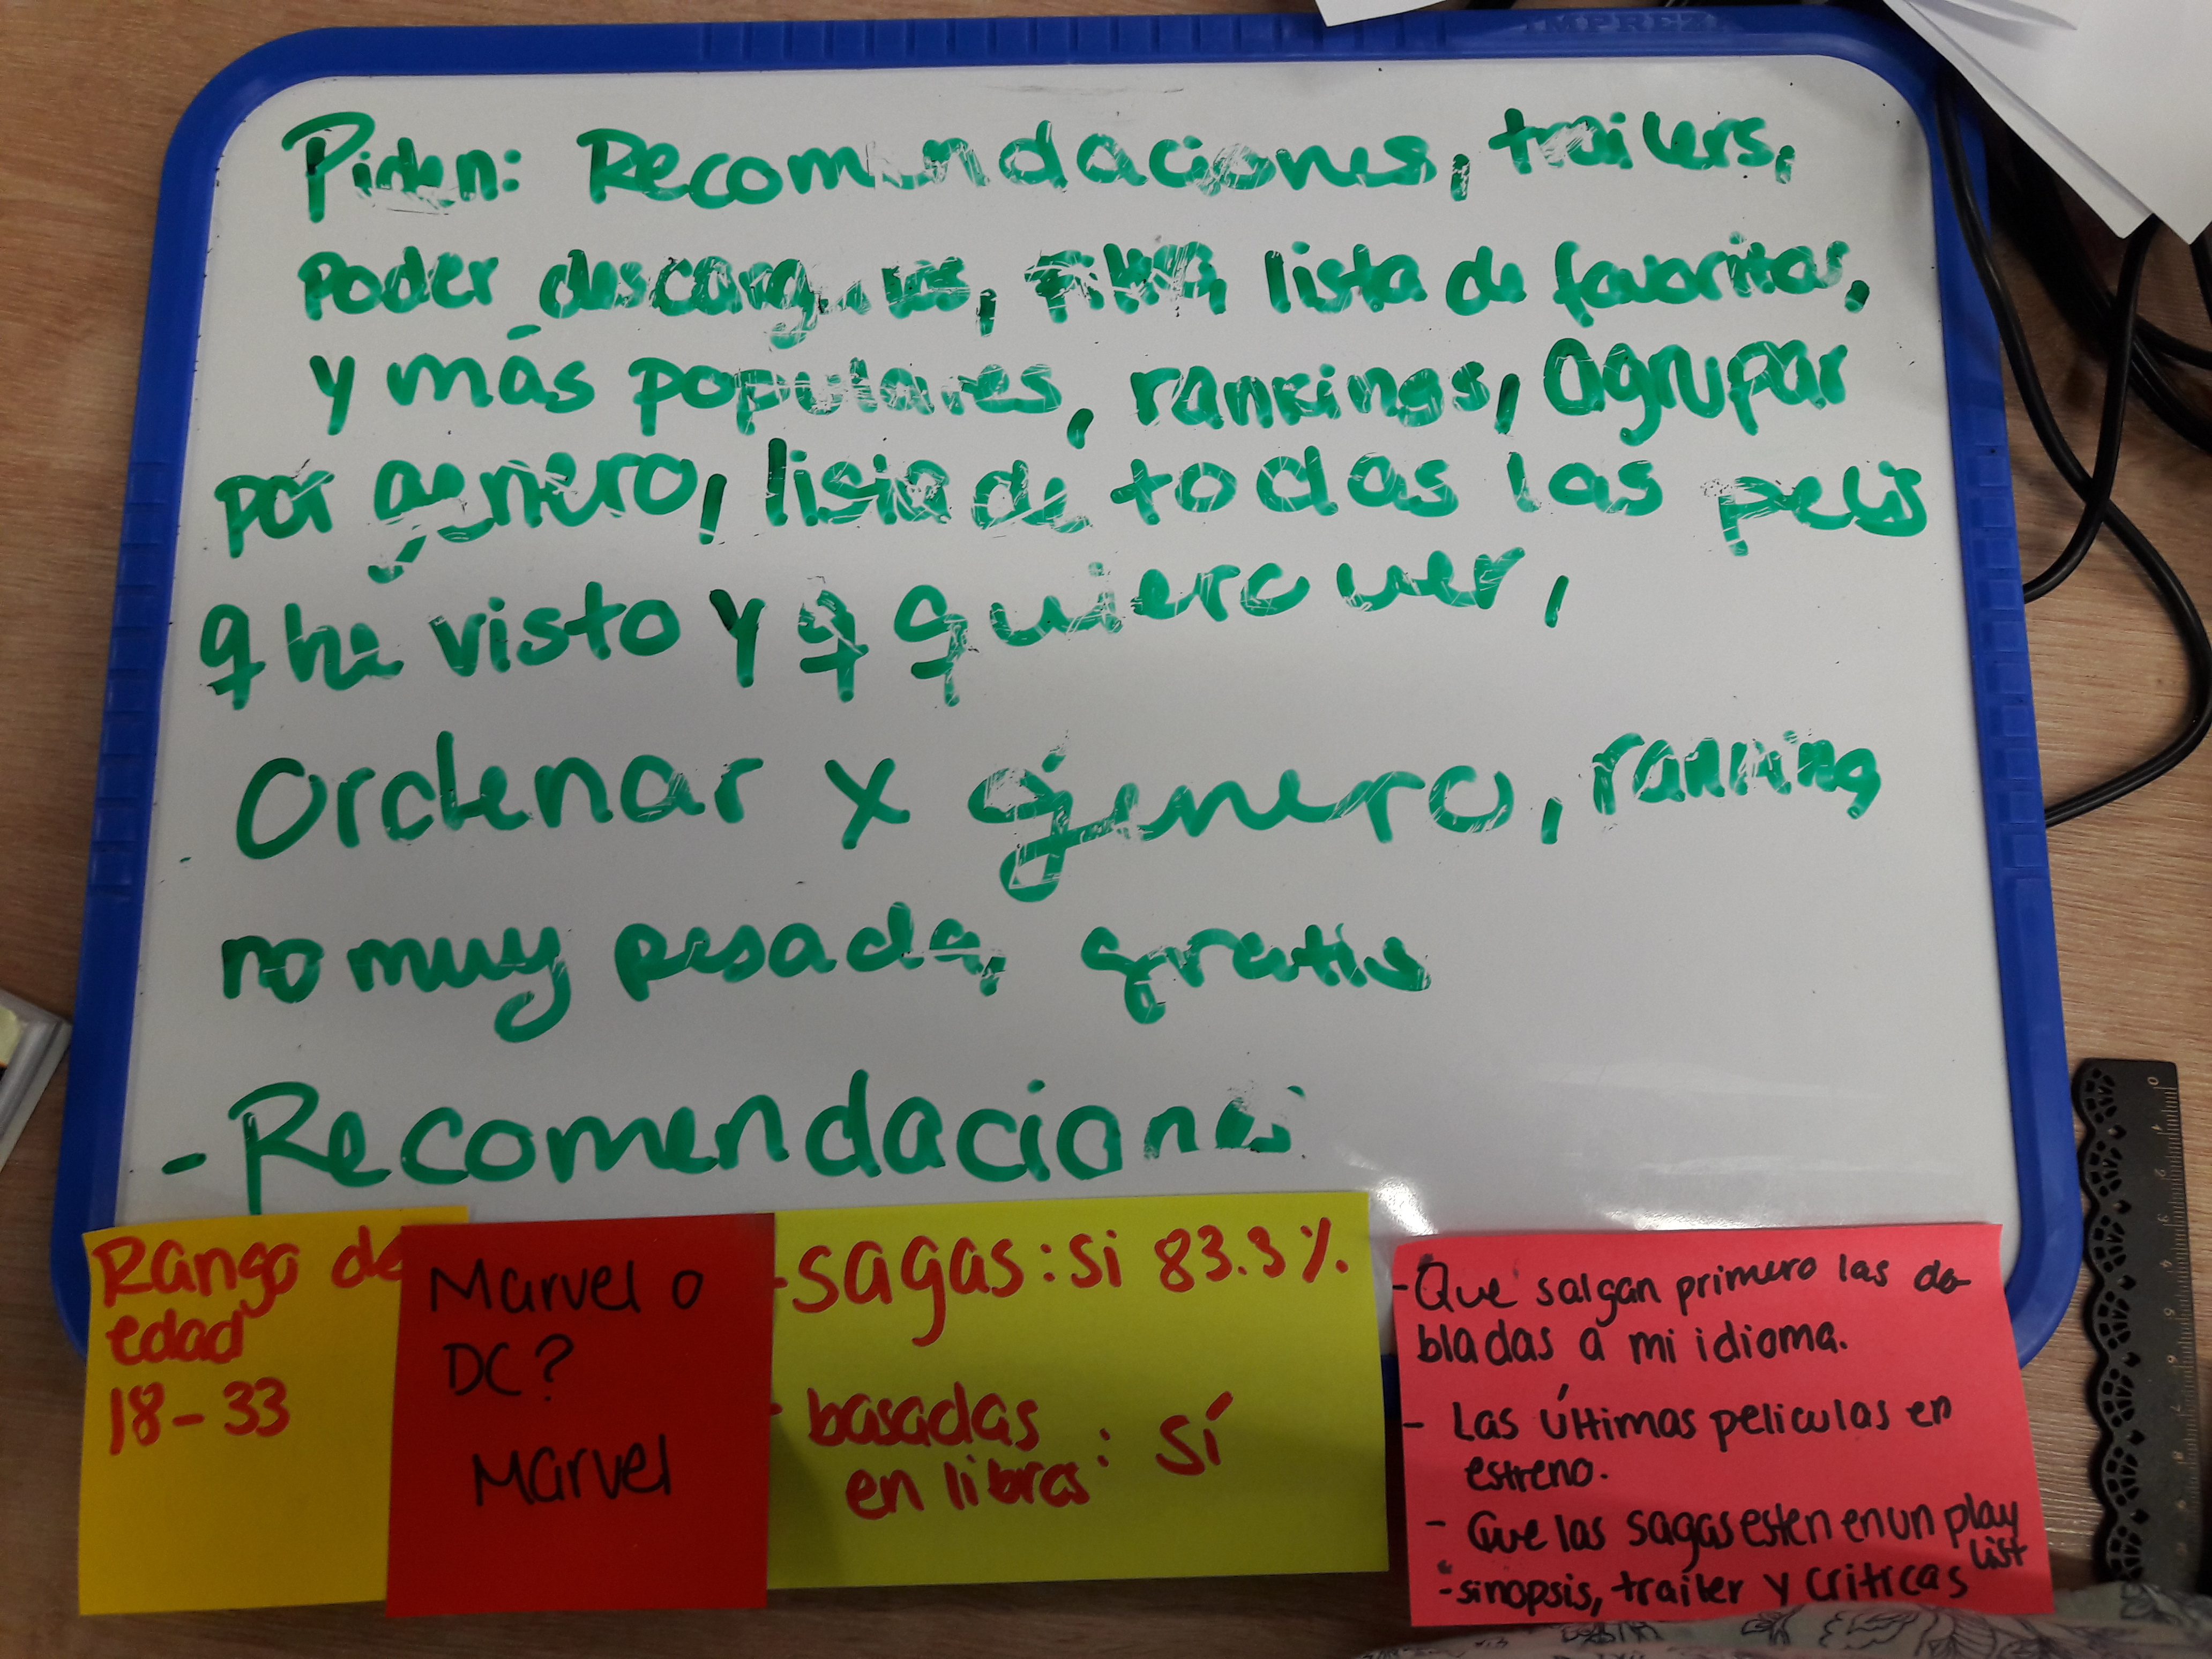 Piden: Recomendaciones, trailers,
poder descargarlas, filtros, lista de favoritos,
y más populares, rankings, agrupar
por género, lista de todas las pelis
q he visto y q quiero ver,
Ordenar x género, ranking
no muy pesada, gratis
- Recomendacions
Rango de
edad
18-33
Marvel o
DC?
Marvel
- Sagas: si 83.3%
- basadas
en libros: Sí
- Que salgan primero las do-
bladas a mi idioma.
- Las últimas peliculas en
estreno.
- Que las sagas esten en un play
list
- sinopsis, trailer y criticas